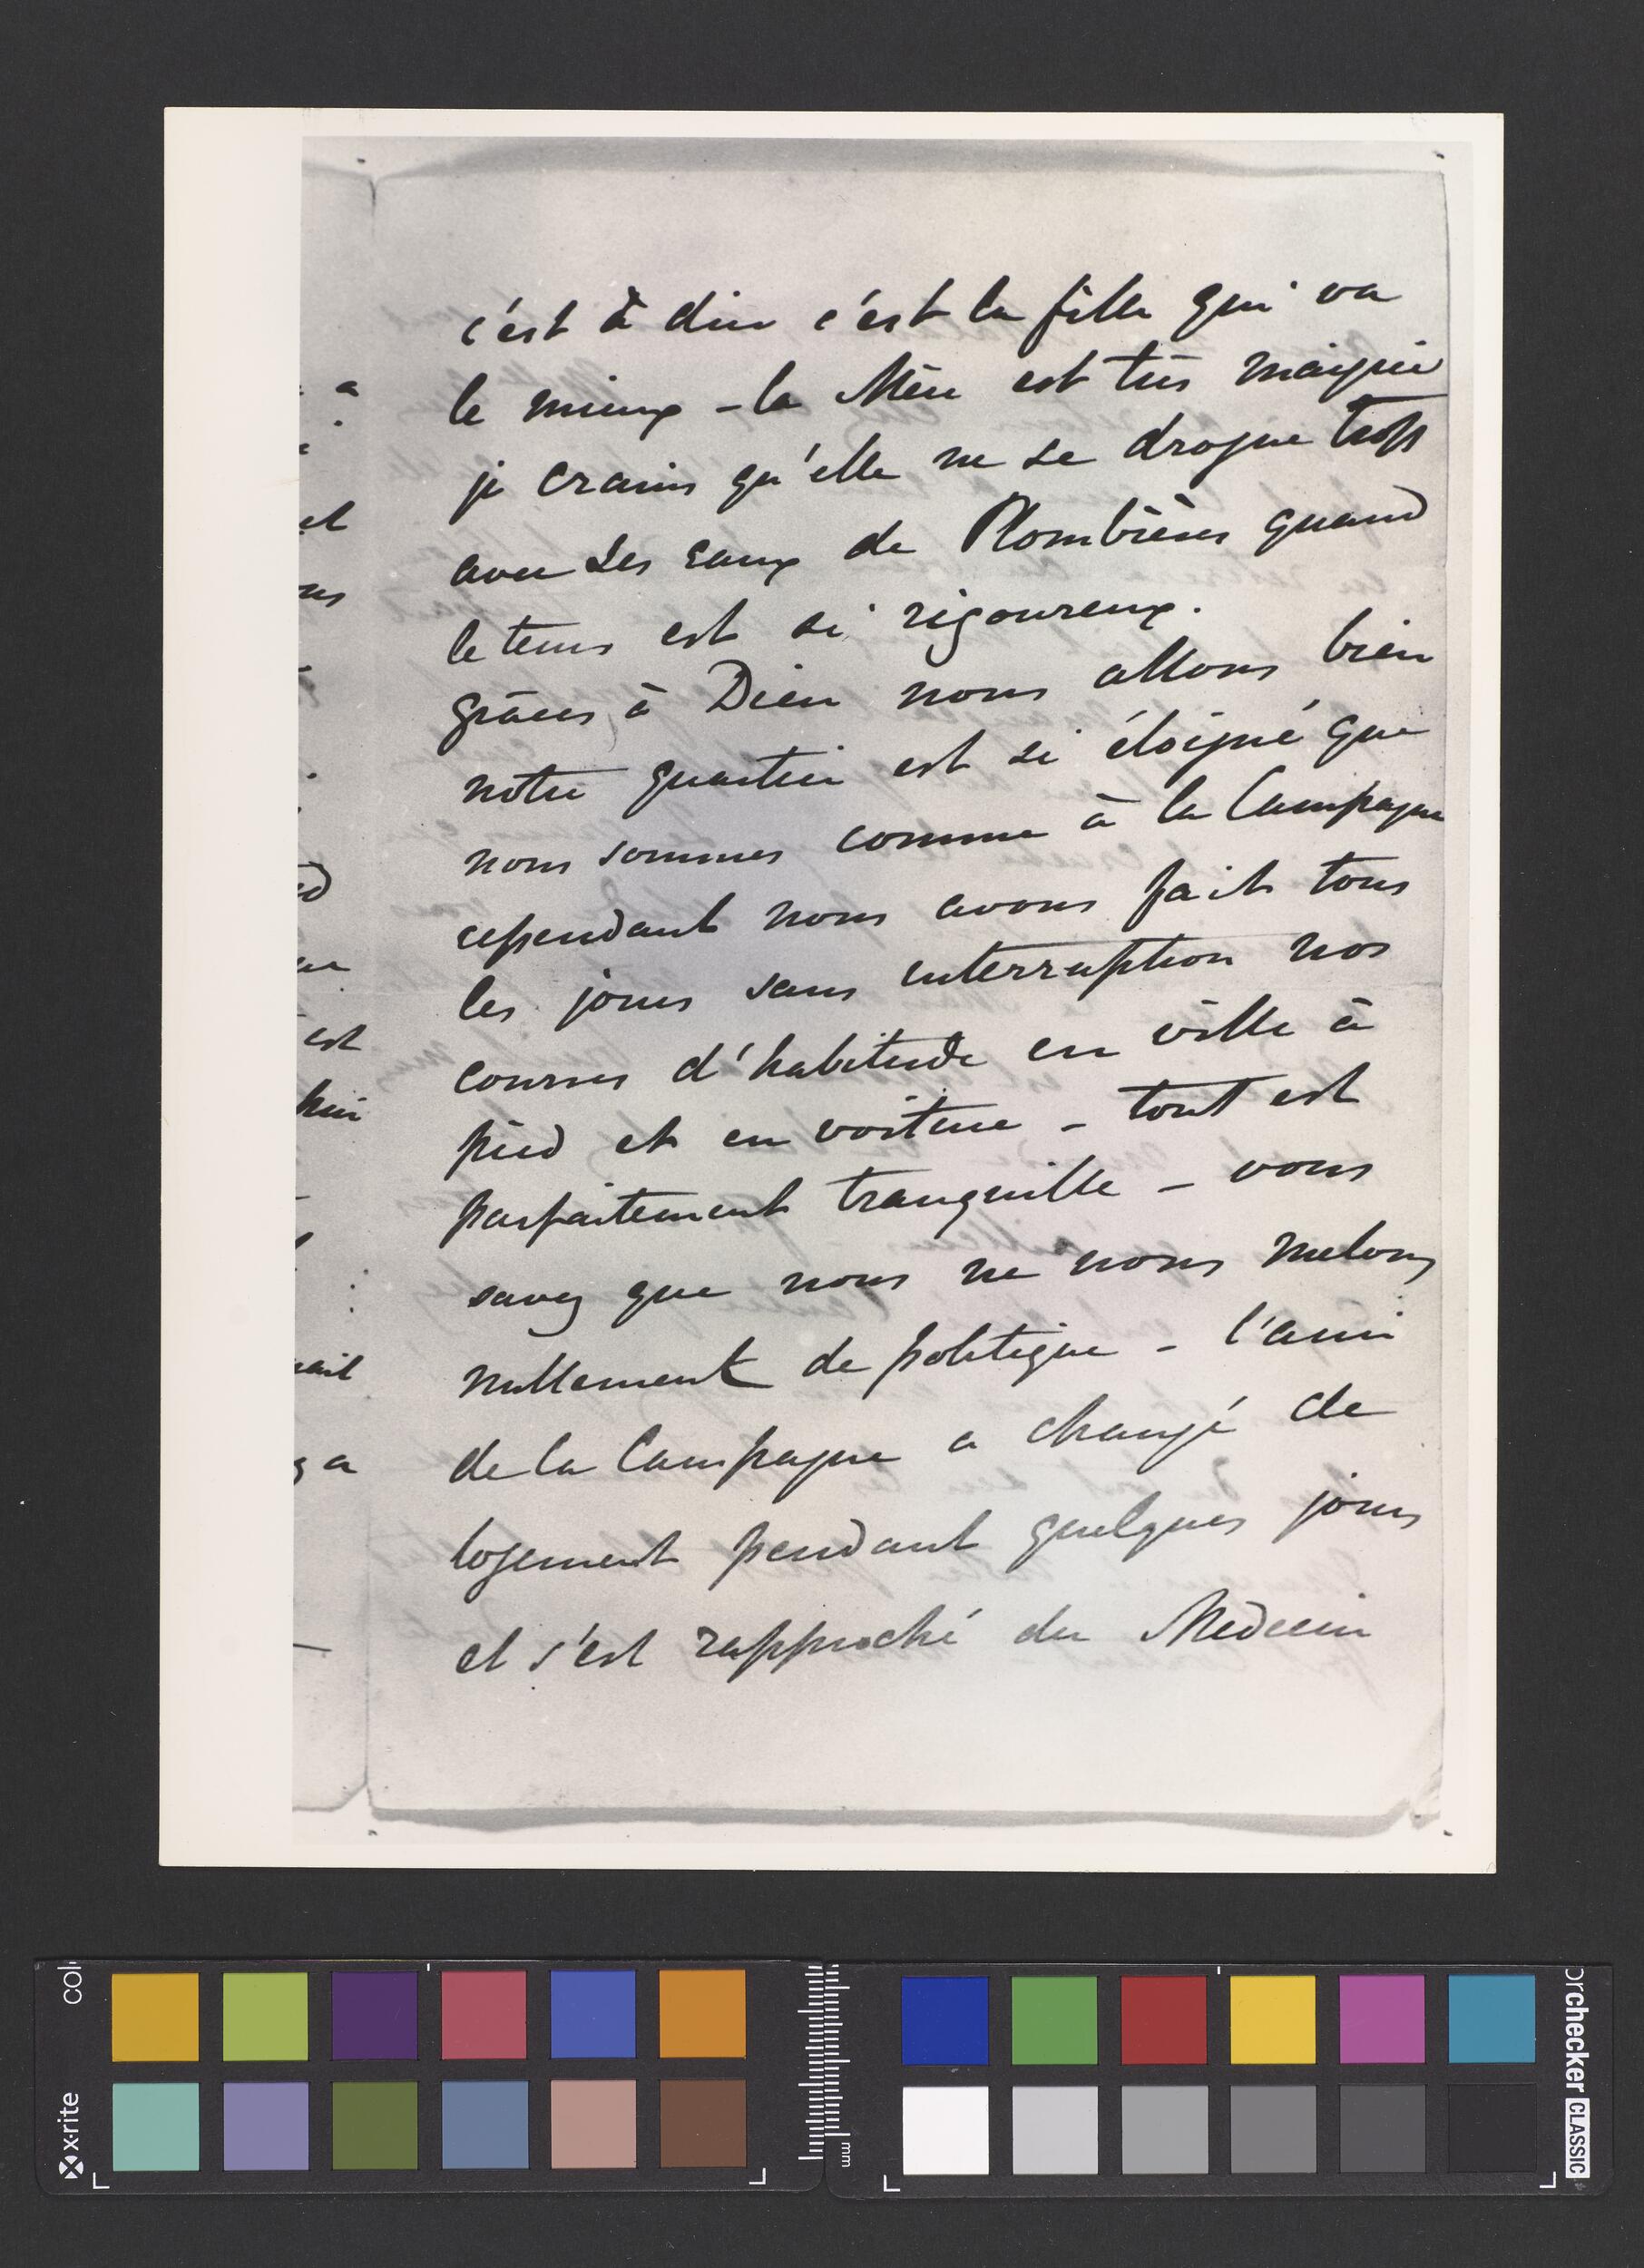 c'est à dire c'est la fille qui va
le mieux - la Mère est très maigrie
je crains qu'elle ne se drogue trop
avec les eaux de Plombières quand
le tems est si rigoureux.
grâces à Dieu nous allons bien
notre quartier est si éloigné que
nous sommes comme à la Campagne
cependant nous avons fait tous
les jours sans interruption nos
courses d'habitude en ville à
pied et en voiture - tout est
parfaitement tranquille - vous
savez que nous ne nous melons
nullement de politique - l'ami
de la Campagne a changé de
logement pendant quelques jours
et s'est rapproché du Medecin
a
et
ns
est
hui
ait
a
x-rite
colo
mm
orchecker CLASSIC